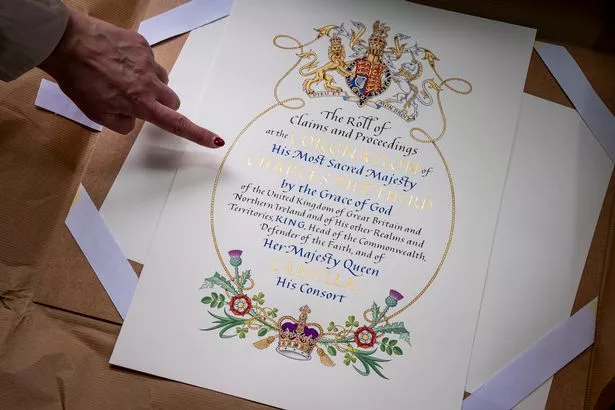 The Roll of
Claims and Proceedings
at the CORONATION of
His Most Sacred Majesty
CHARLES THE THIRD
by the Grace of God
of the United Kingdom of Great Britain and
Northern Ireland and of His other Realms and
Territories, KING, Head of the Commonwealth,
Defender of the Faith, and of
Her Majesty Queen
CAMILLA
His Consort